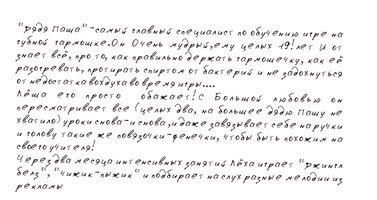 "Дядя Паша"-самый главный специалист по обучению игре на
губной гармошке.Он Очень мудрый,ему целых 19!лет И от
знает всё, про то, как правильно держать гармошечку, как её
разогревать, протирать спиртом от бактерий и не задохнуться
от недостатка воздуха во время игры....
Лёша его просто обажает!С Большой любовью он
пересматривает все (целых два, на большее дядю Пашу не
хватило) уроки снова-и снова,и даже завязывает себе на ручки
и голову такие же повязочки-фенечки, чтобы быть похожим на
своего учителя!
Через два месяца интенсивных занятий Лёха играет "Джингл
белз", "Чижик-пыжик" и подбирает на слух разные мелодии из
рекламы